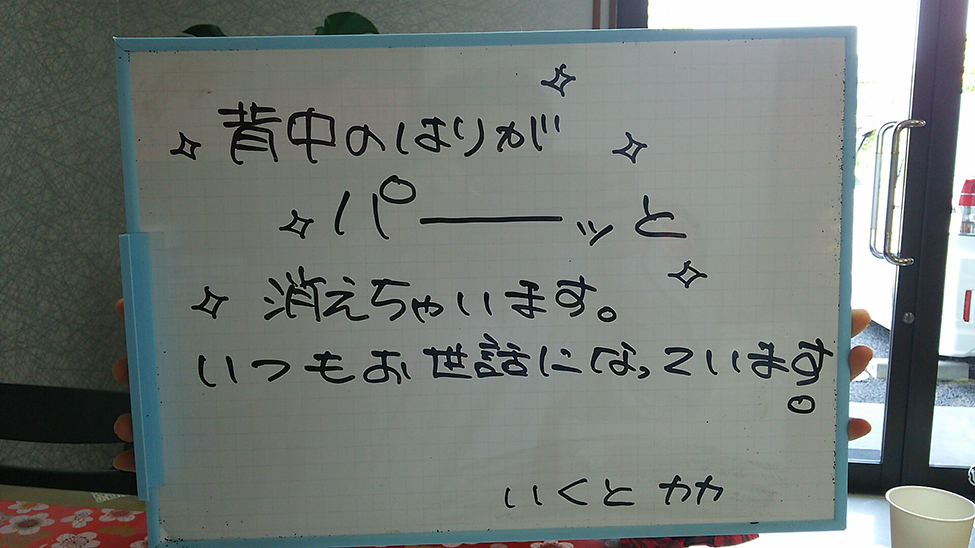 背中のはりが
パーーッと
消えちゃいます。
いつもお世話になっています。
いくと カカ